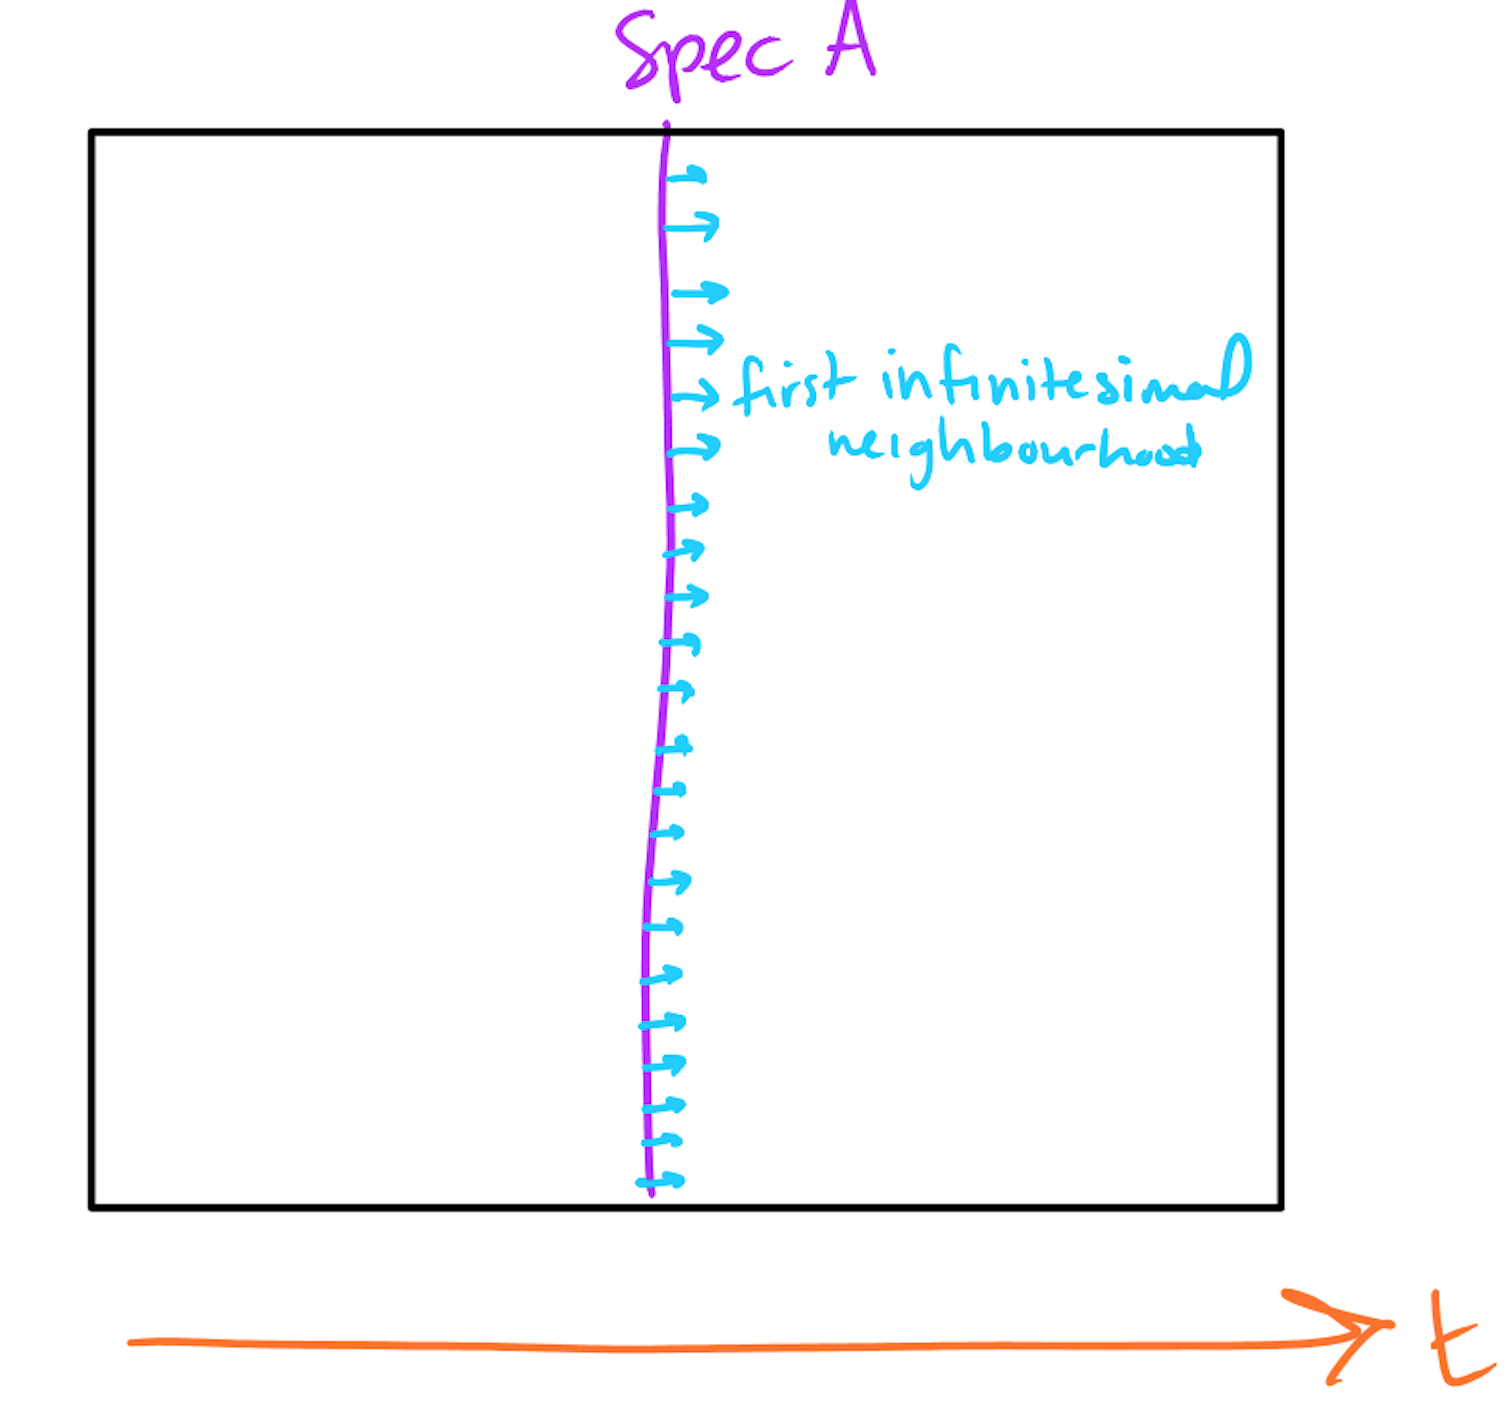 Spec A
first infinitesimal
neighbourhood
t